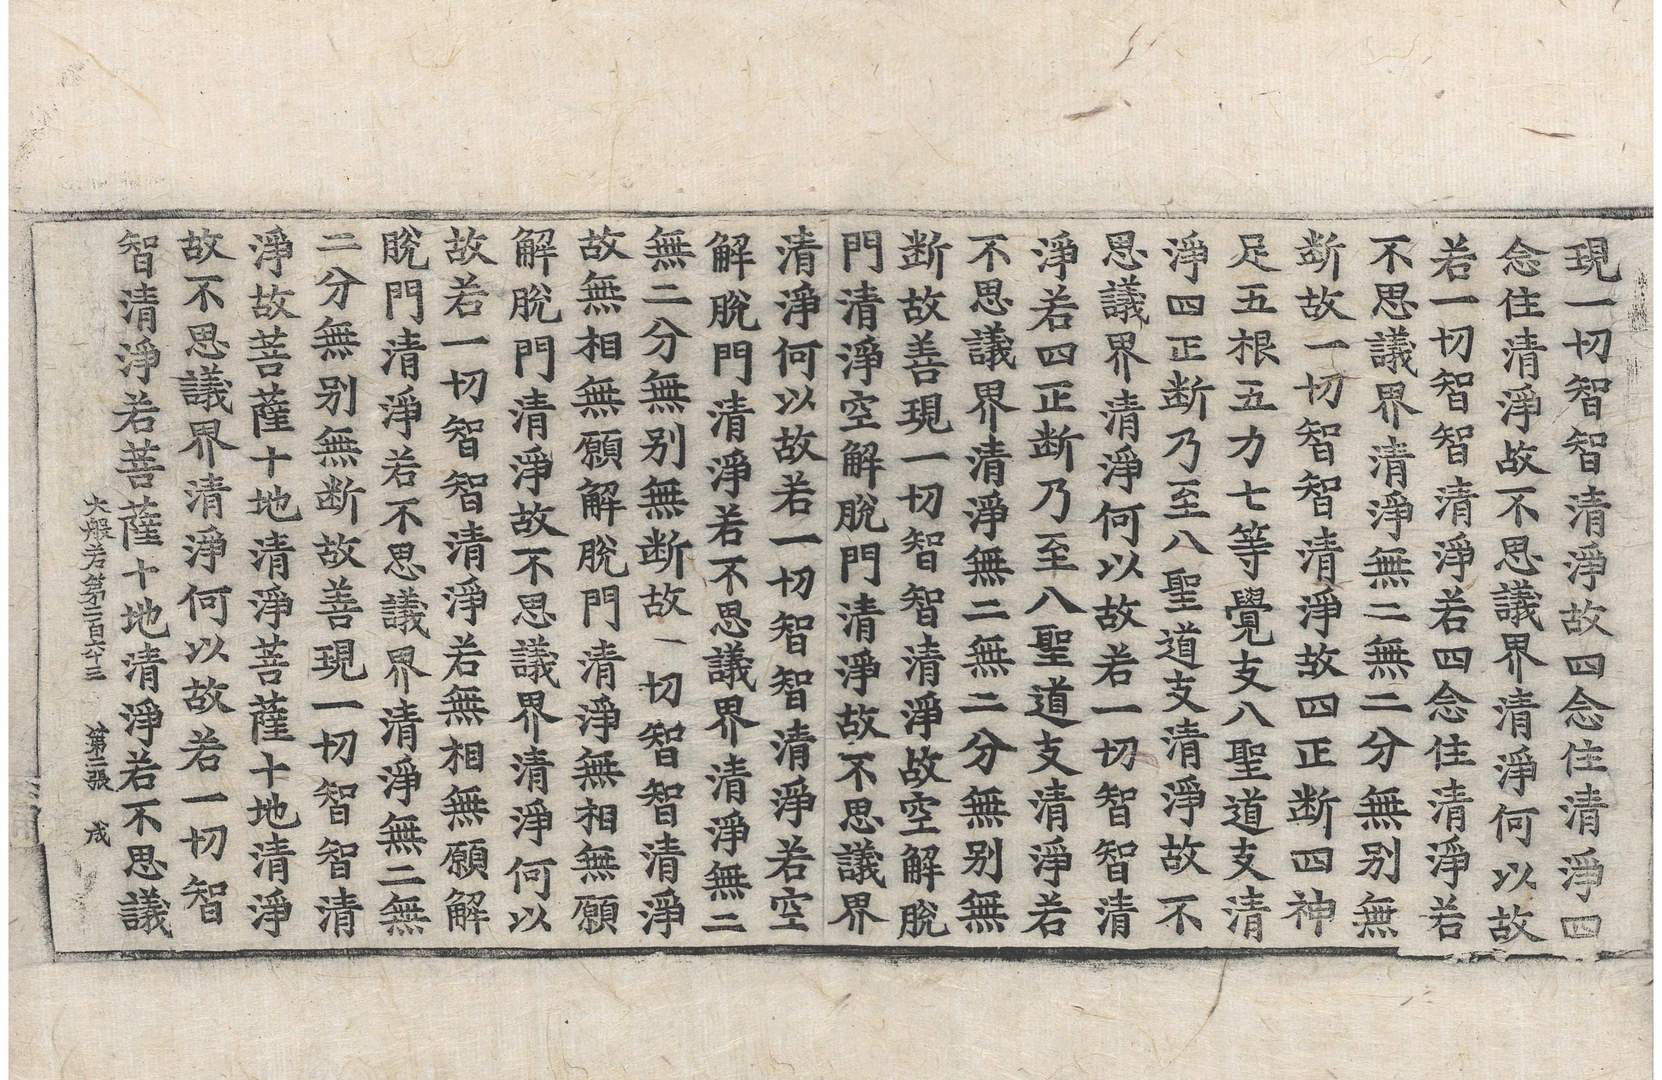 現一切智智清淨故四念住清淨四
念住清淨故不思議界清淨何以故
若一切智智清淨若四念住清淨若
不思議界清淨無二無二分無別無
断故一切智智清淨故四正断四神
足五根五力七等覺支八聖道支清
淨四正断乃至八聖道支清淨故不
思議界清淨何以故若一切智智清
淨若四正断乃至八聖道支清淨若
不思議界清淨無二無二分無別無
断故善現一切智智清淨故空解脫
門清淨空解脫門清淨故不思議界
清淨何以故若一切智智清淨若空
解脫門清淨若不思議界清淨無二
無二分無別無断故一切智智清淨
故無相無願解脫門清淨無相無願
解脫門清淨故不思議界清淨何以
故若一切智智清淨若無相無願解
脫門清淨若不思議界清淨無二無
二分無別無断故善現一切智智清
淨故菩薩十地清淨菩薩十地清淨
故不思議界清淨何以故若一切智
智清淨若菩薩十地清淨若不思議
大般若第二百六十三 第二張 戍